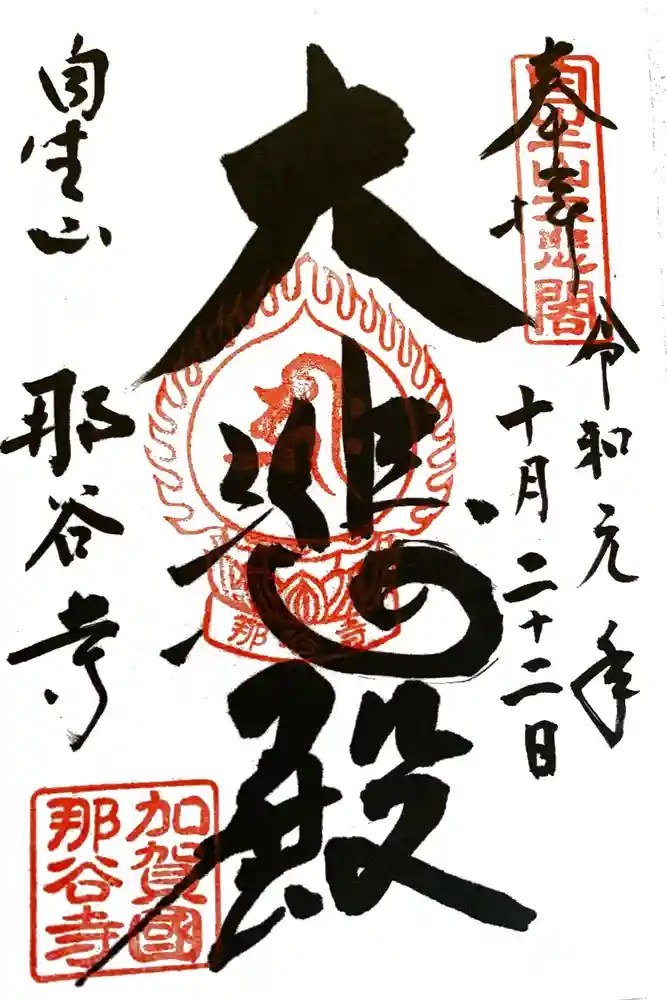 奉拝
自生山大悲閣
令和元年
十月二十二日
大悲殿
那谷寺
自生山
那谷寺
加賀國
那谷寺